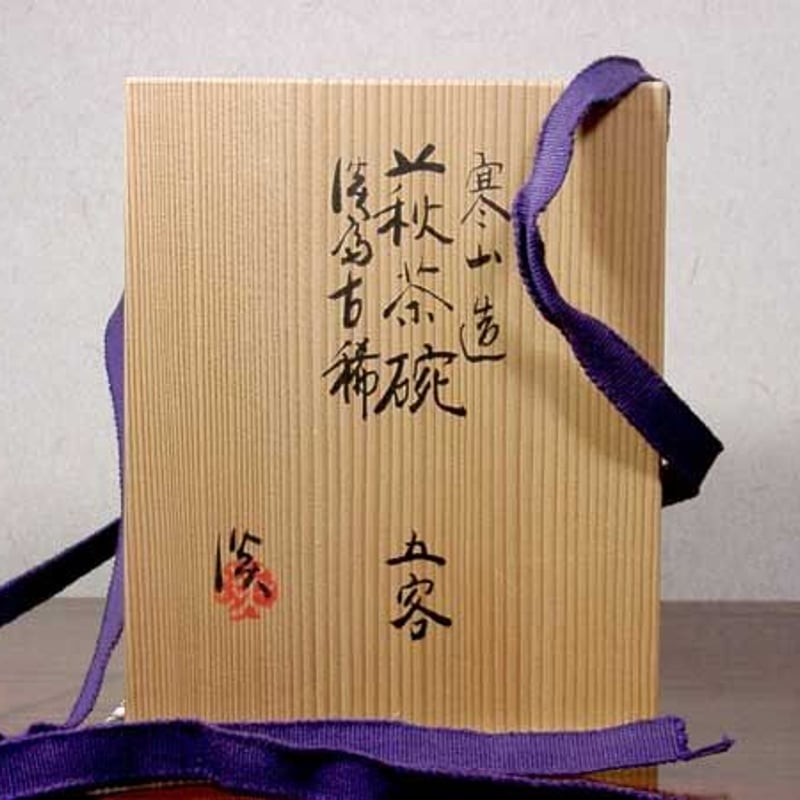 寒山造
萩茶碗 五客
淡 古稀
淡